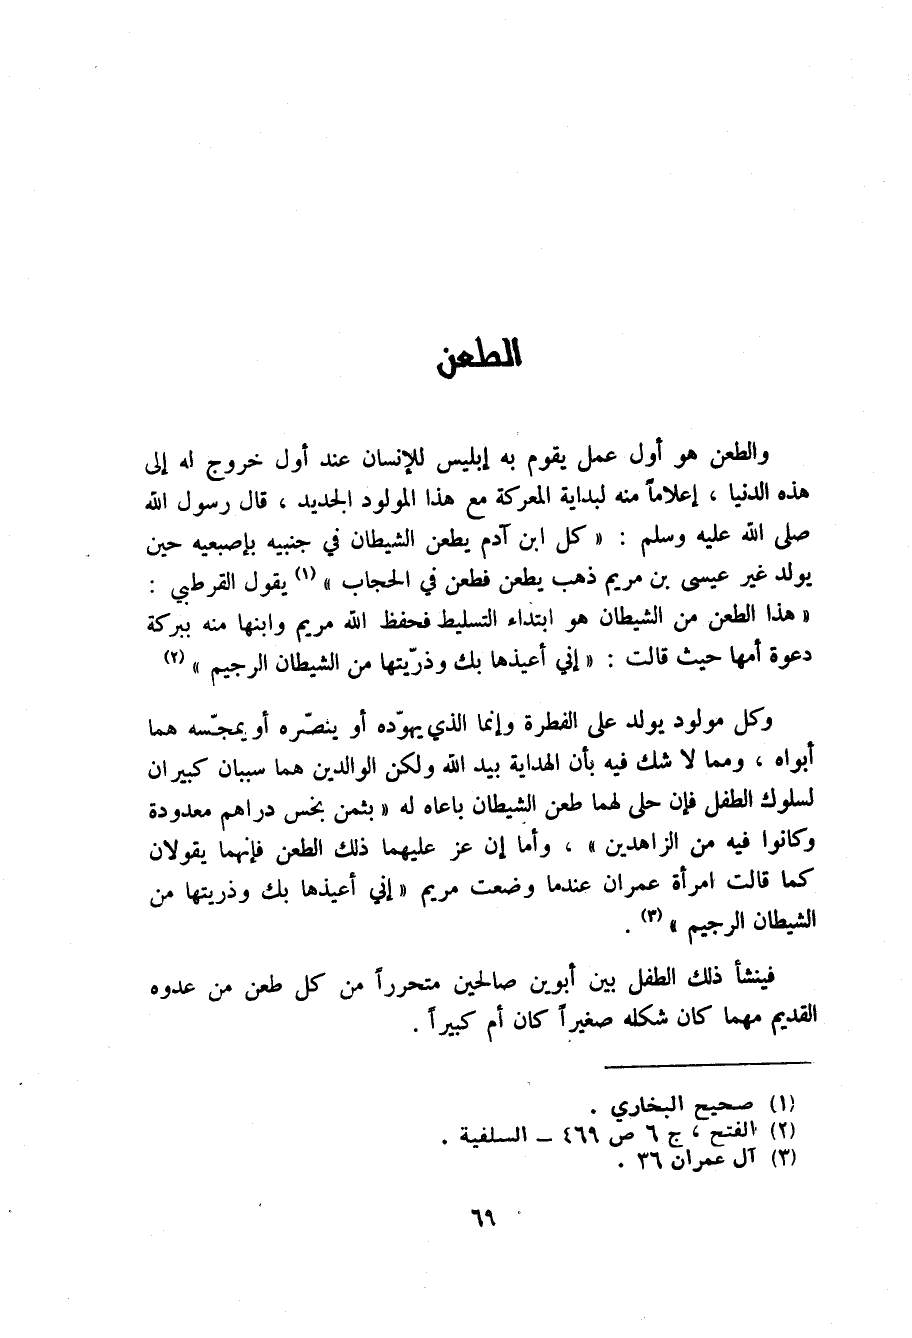 الطعن
والطعن هو أول عمل يقوم به إبليس للإنسان عند أول خروج له إلى
هذه الدنيا ، إعلاماً منه لبداية المعركة مع هذا المولود الجديد ، قال رسول الله
صلى الله عليه وسلم : « كل ابن آدم يطعن الشيطان في جنبيه بإصبعيه حين
يولد غير عيسى بن مريم ذهب يطعن فطعن في الحجاب » (١) يقول القرطبي :
« هذا الطعن من الشيطان هو ابتداء التسليط فحفظ الله مريم وابنها منه ببركة
دعوة أمها حيث قالت : « إني أعيذها بك وذرّيتها من الشيطان الرجيم » (٢)
وكل مولود يولد على الفطرة وإنما الذي يهوّده أو ينصّره أو يمجّسه هما
أبواه ، ومما لا شك فيه بأن الهداية بيد الله ولكن الوالدين هما سببان كبيران
لسلوك الطفل فإن حلى لهما طعن الشيطان باعاه له « بثمن بخس دراهم معدودة
وكانوا فيه من الزاهدين » ، وأما إن عز عليهما ذلك الطعن فإنهما يقولان
كما قالت امرأة عمران عندما وضعت مريم « إني أعيذها بك وذريتها من
الشيطان الرجيم » (٣) .
فينشأ ذلك الطفل بين أبوين صالحين متحرراً من كل طعن من عدوه
القديم مهما كان شكله صغيراً كان أم كبيراً .
(١) صحيح البخاري .
(٢) الفتح ، ج ٦ ص ٤٦٩ ــ السلفية .
(٣) آل عمران ٣٦ .
٦٩